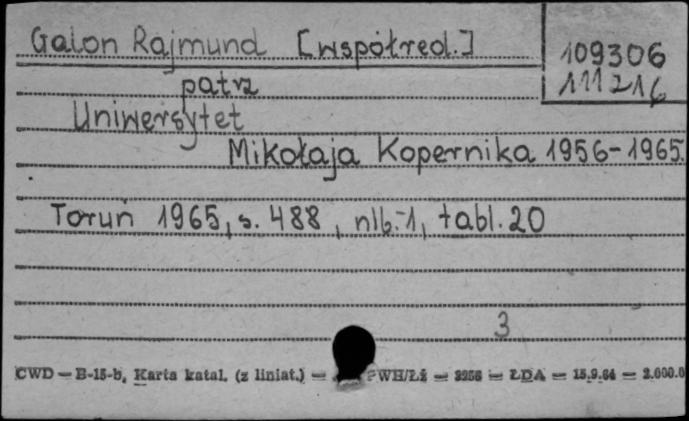 Galon Rajmund [współred.]
109306
111216
patrz
Uniwersytet
Mikołaja Kopernika 1956-1965.
Toruń 1965, s. 488, nlb.-1, tabl. 20
3
CWD — B-15-b, Karta katal. (z liniat.) — PWH/Łż — 3256 — ŁDA — 15.9.64 — 2.000.0